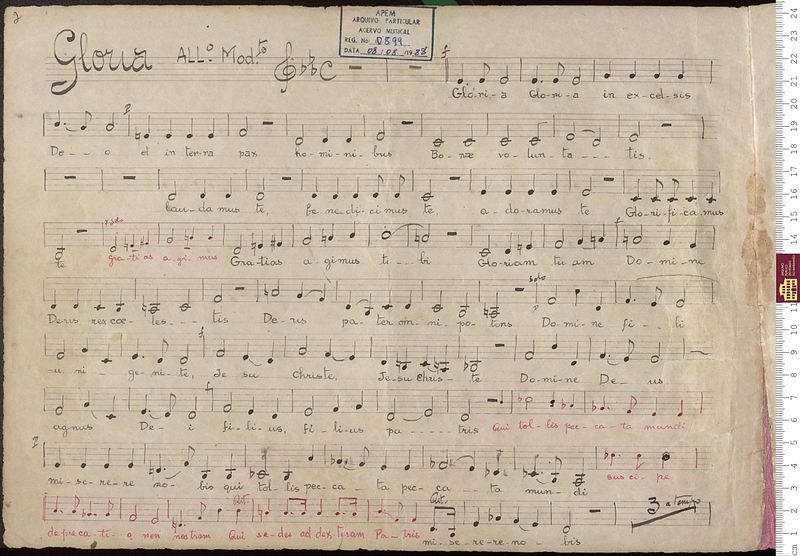 2
APEM
ARQUIVO PARTICULAR
ACERVO MUSICAL
REG. No: 0899
DATA 08/08/1988
Gloria ALL.º Mod.to
Gló-ri-a Glo-ri-a in ex-cel-sis
De-o et in ter-na pax ho-mi-ni-bus Bo-næ vo-lun-ta---tis.
Lau-da mus te, be-ne-di-ci mus te, a-do-ramus te Glo-ri-fi-ca.mus
te gra-ti-as a-gi-mus Gra-tias a-gimus ti---bi Glo-riam tu am Do-mi-ne
solo
Deus rex coe-les---tis De-us pa-ter om-ni-po-tens Do-mi-ne fi--li
-u ni-ge-ni-te, Je su Christe, Je-su Chris-te Do-mi-ne De-us
agnus De-i fi-li-us, fi-li-us pa----tris Qui tol-lis pec-ca-ta mundi
mi-se-re-re no-bis qui tol-lis pec-ca-ta pec-ca--ta mun-di sus ci-pe
3 a tempo
depreca-ti-o nen nostram Qui se-des ad dex-teram Pa-tris mi-se-re-re-no-bis